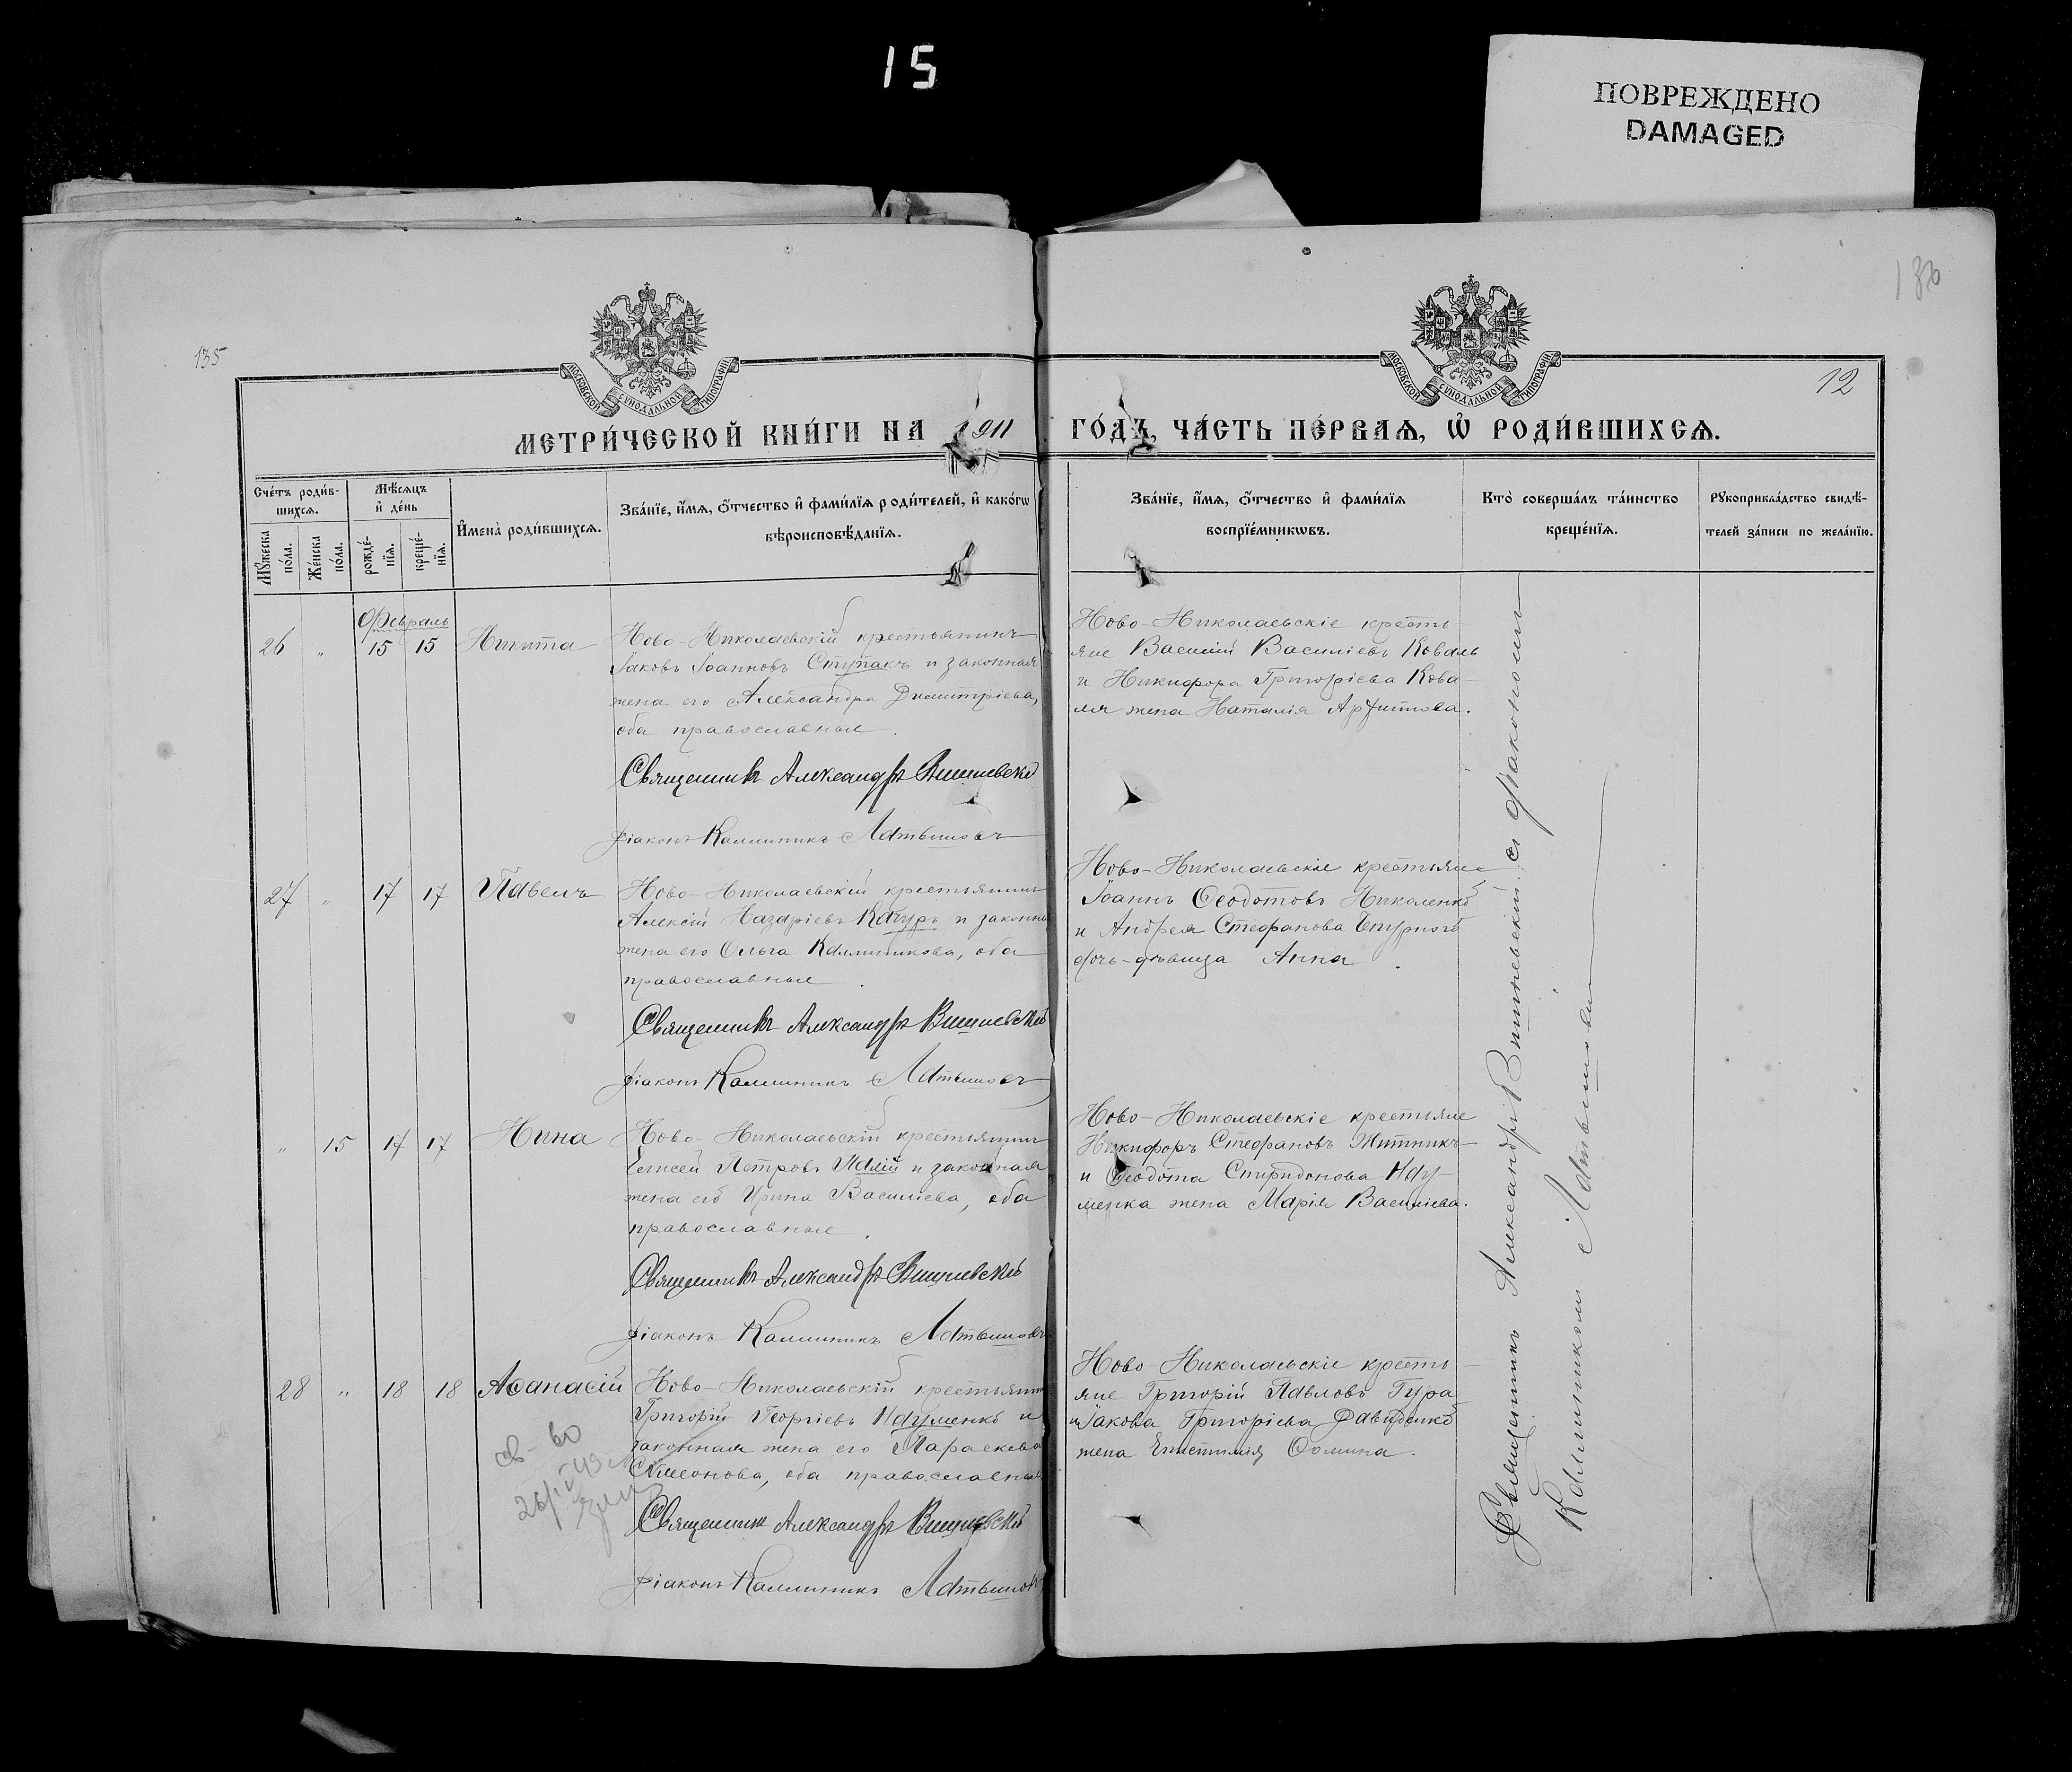 15
ПОВРЕЖДЕНО
DAMAGED
135
136
12
МОСКОВСКОЙ СѴНОДАЛЬНОЙ ТИПОГРАФІИ
МОСКОВСКОЙ СѴНОДАЛЬНОЙ ТИПОГРАФІИ
МЕТРИ́ЧЕСКОЙ КНИ́ГИ НА 1911 ГО́ДЪ, ЧА́СТЬ ПЕ́РВАѦ, Ѽ РОДИ́ВШИХСѦ.
Сче́тъ роди́в-
шихсѧ.
Мѣ́сѧцъ
и҆ де́нь
Мꙋ́жеска по́ла.
Же́нска по́ла.
рожде́-нїѧ.
креще́-нїѧ.
И҆мена̀ роди́вшихсѧ.
Зва́нїе, и҆́мѧ, ѻ҆́тчество и҆ фами́лїѧ роди́телей, и҆ како́гѡ
вѣроисповѣ́данїѧ.
Зва́нїе, и҆́мѧ, ѻ҆́тчество и҆ фами́лїѧ
воспрїе́мникѡвъ.
Кто̀ соверша́лъ та́инство
креще́нїѧ.
Рꙋкоприкла́дство свидѣ́-
телей за́писи по жела́нїю.
Февраль
26 " 15 15 Никита
Ново-Николаевскій крестьянинъ
Іаковъ Іоанновъ Ступакъ и законная
жена его Александра Димитріева,
оба православные.
Священникъ Александръ Вишневскій
Діаконъ Каллиникъ Латвиновъ
Ново-Николаевскіе кресть-
яне Василій Василіевъ Коваль
и Никифора Григорієва Кова-
ля жена Наталія Архипова.
27 " 17 17 Павелъ
Ново-Николаевскій крестьянинъ
Алексій Назаріевъ Качуръ и законна
жена его Ольга Каллиникова, оба
православные.
Священникъ Александръ Вишневскій
Діаконъ Каллиникъ Латвиновъ
Ново-Николаевскіе крестьяне
Іоаннъ Ѳеодотовъ Николенко
и Андрея Стефанова
дочь-дѣвица Анна.
" 15 17 17 Нина
Ново-Николаевскій крестьянинъ
Елисей Петровъ Палій и законная
жена его Ирина Василіева, оба
православные.
Священникъ Александръ Вишневскій
Діаконъ Каллиникъ Латвиновъ
Ново-Николаевскіе крестьяне
Никифоръ Стефановъ Житникъ
и Ѳеодота Спиридонова Нау-
менка жена Марія Василіева.
28 " 18 18 Аѳанасій
Ново-Николаевскій крестьянинъ
Григорій Георгіевъ Науменко и
законная жена его Параскева
Симеонова, оба православные
Священникъ Александръ Вишневскій
Діаконъ Каллиникъ Латвиновъ
Ново-Николаевскіе кресть-
яне Григорій Павловъ Гура
и Іакова Григоріева Давиденко
жена Епистимія Ѳомина.
св-во
Священникъ Александръ Вишневскій съ діакономъ
Каллиникомъ Латвиновымъ